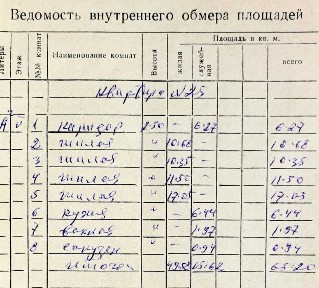 Ведомость внутреннего обмера площадей
Литеры Этаж №№ комнат Наименование комнат Высота Площадь в кв. м.
жилая служебная всего
Квартира N 25
А V 1 Каридор 2.50 - 6.27 6.27
2 жилая " 10.68 - 10.68
3 жилая " 10.35 - 10.35
4 жилая " 11.50 - 11.50
5 жилая " 17.05 - 17.05
6 кухня " - 6.44 6.44
7 ванная " - 1.97 1.97
8 санузел " - 0.94 0.94
Итого 49.58 15.62 65.20